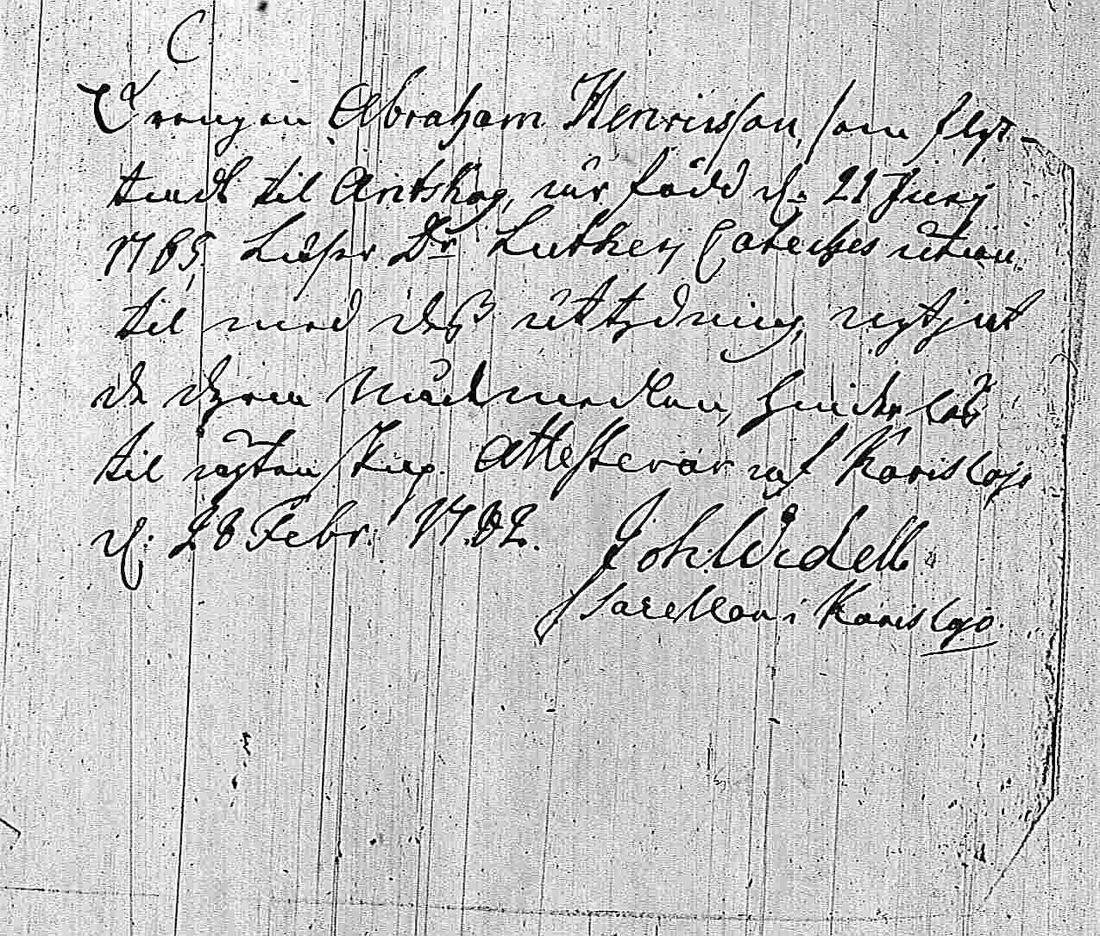 C
Drengen Abraham Henricsson, som flyt-
tade til Antskog, är född d. 21 Junij
1765, Läser Dr Lutherj Cateches utan
til med dess uttydning, nytjat
de dyra Nådemedlen, hinderlös
til ägtenskap. Attesterar af Karislojo
d. 28 Febr. 1782. Joh. Widell
Sacellan i Karislojo